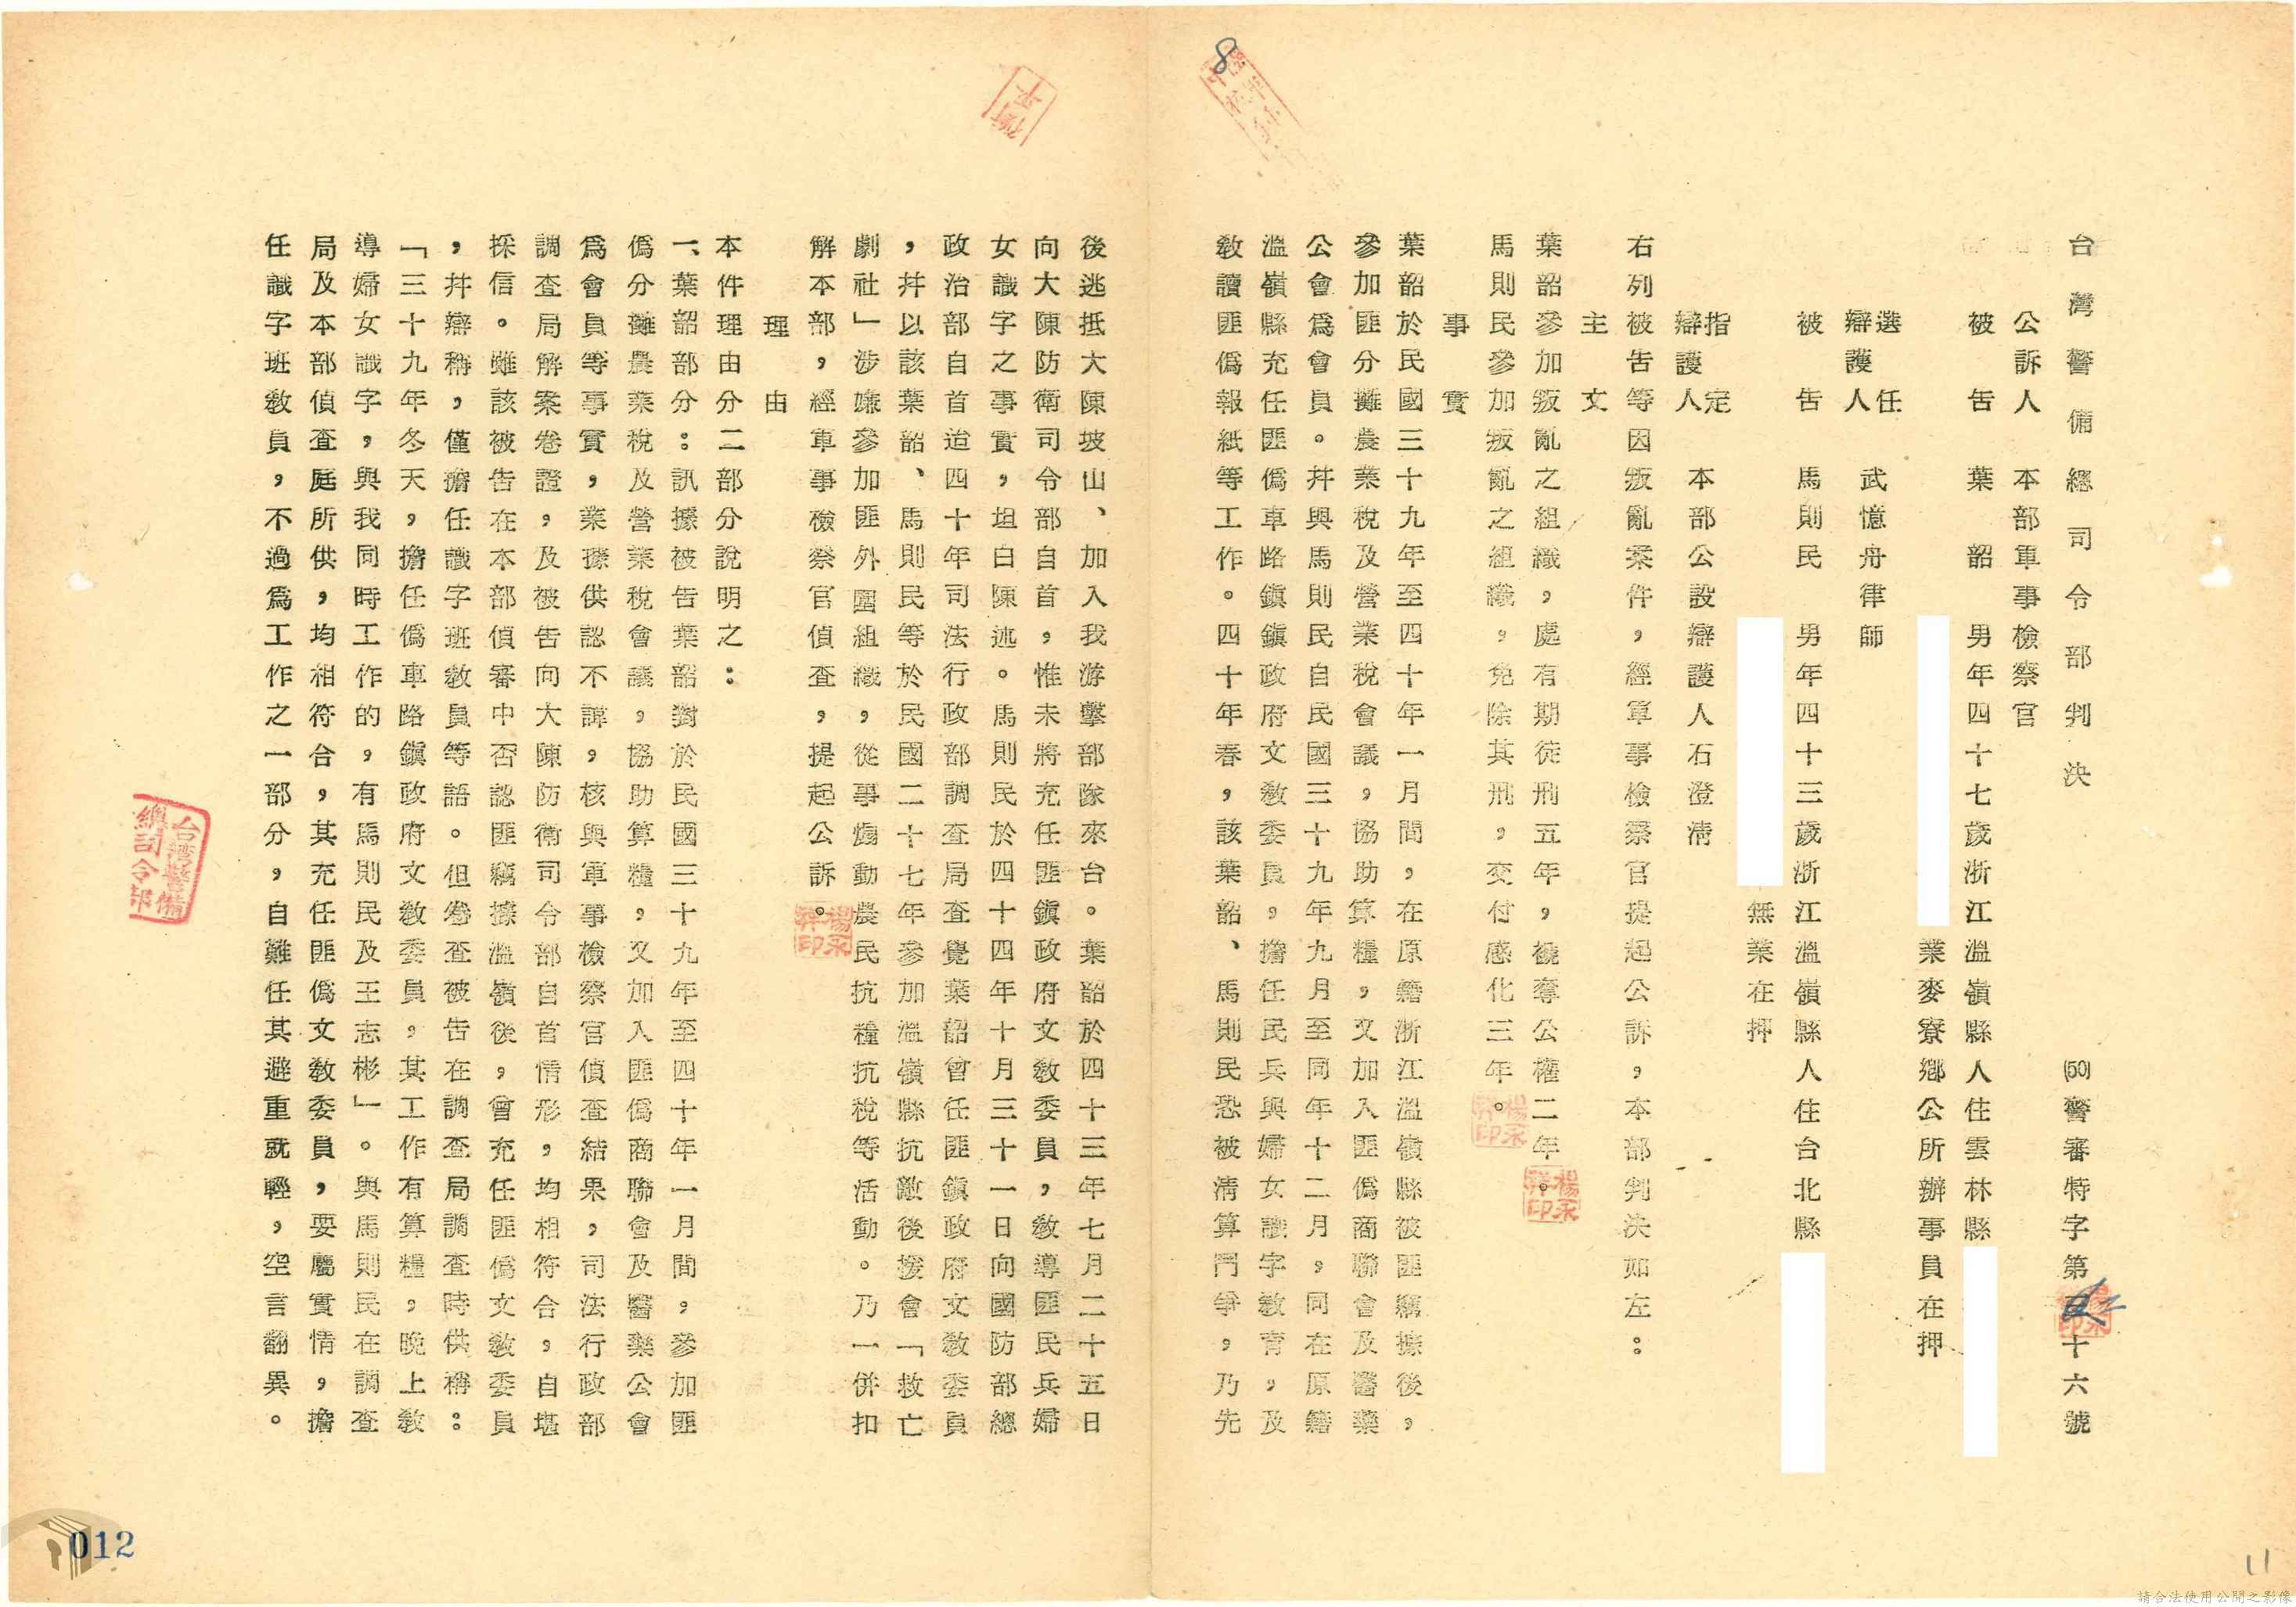 台灣警備總司令部判決
(50)警審特字第 十六號
公訴人 本部軍事檢察官
被告 葉韶 男年四十七歲浙江溫嶺縣人住雲林縣
業麥寮鄉公所辦事員在押
選任辯護人 武憶舟律師
被告 馬則民 男年四十三歲浙江溫嶺縣人住台北縣
無業在押
指定辯護人 本部公設辯護人石澄清
右列被告等因叛亂案件，經軍事檢察官提起公訴，本部判決如左：
主文
葉韶參加叛亂之組織，處有期徒刑五年，褫奪公權二年。
馬則民參加叛亂之組織，免除其刑，交付感化三年。
事實
葉韶於民國三十九年至四十年一月間，在原籍浙江溫嶺縣被匪竊據後，
參加匪分攤農業稅及營業稅會議，協助算糧，又加入匪偽商聯會及醫藥
公會為會員。并與馬則民自民國三十九年九月至同年十二月，同在原籍
溫嶺縣充任匪偽車路鎮鎮政府文教委員，擔任民兵與婦女識字教育，及
教讀匪偽報紙等工作。四十年春，該葉韶、馬則民恐被清算鬥爭，乃先
後逃抵大陳坡山、加入我游擊部隊來台。葉韶於四十三年七月二十五日
向大陳防衛司令部自首，惟未將充任匪鎮政府文教委員，教導匪民兵婦
女識字之事實，坦白陳述。馬則民於四十四年十月三十一日向國防部總
政治部自首迨四十年司法行政部調查局查覺葉韶曾任匪鎮政府文教委員
，并以該葉韶、馬則民等於民國二十七年參加溫嶺縣抗敵後援會「救亡
劇社」涉嫌參加匪外圍組織，從事煽動農民抗糧抗稅等活動。乃一併扣
解本部，經軍事檢察官偵查，提起公訴。
理由
本件理由分二部分說明之：
一、葉韶部分：訊據被告葉韶對於民國三十九年至四十年一月間，參加匪
偽分攤農業稅及營業稅會議，協助算糧，又加入匪偽商聯會及醫藥公會
為會員等事實，業據供認不諱，核與軍事檢察官偵查結果，司法行政部
調查局解案卷證，及被告向大陳防衛司令部自首情形，均相符合，自堪
採信。雖該被告在本部偵審中否認匪竊據溫嶺後，曾充任匪偽文教委員
，并辯稱，僅擔任識字班教員等語。但卷查被告在調查局調查時供稱：
「三十九年冬天，擔任偽車路鎮政府文教委員，其工作有算糧，晚上教
導婦女識字，與我同時工作的，有馬則民及王志彬」。與馬則民在調查
局及本部偵查庭所供，均相符合，其充任匪偽文教委員，要屬實情，擔
任識字班教員，不過為工作之一部分，自難任其避重就輕，空言翻異。
台灣警備總司令部
楊永祥印
楊永祥印
楊永祥印
8
012
11
請合法使用公開之影像